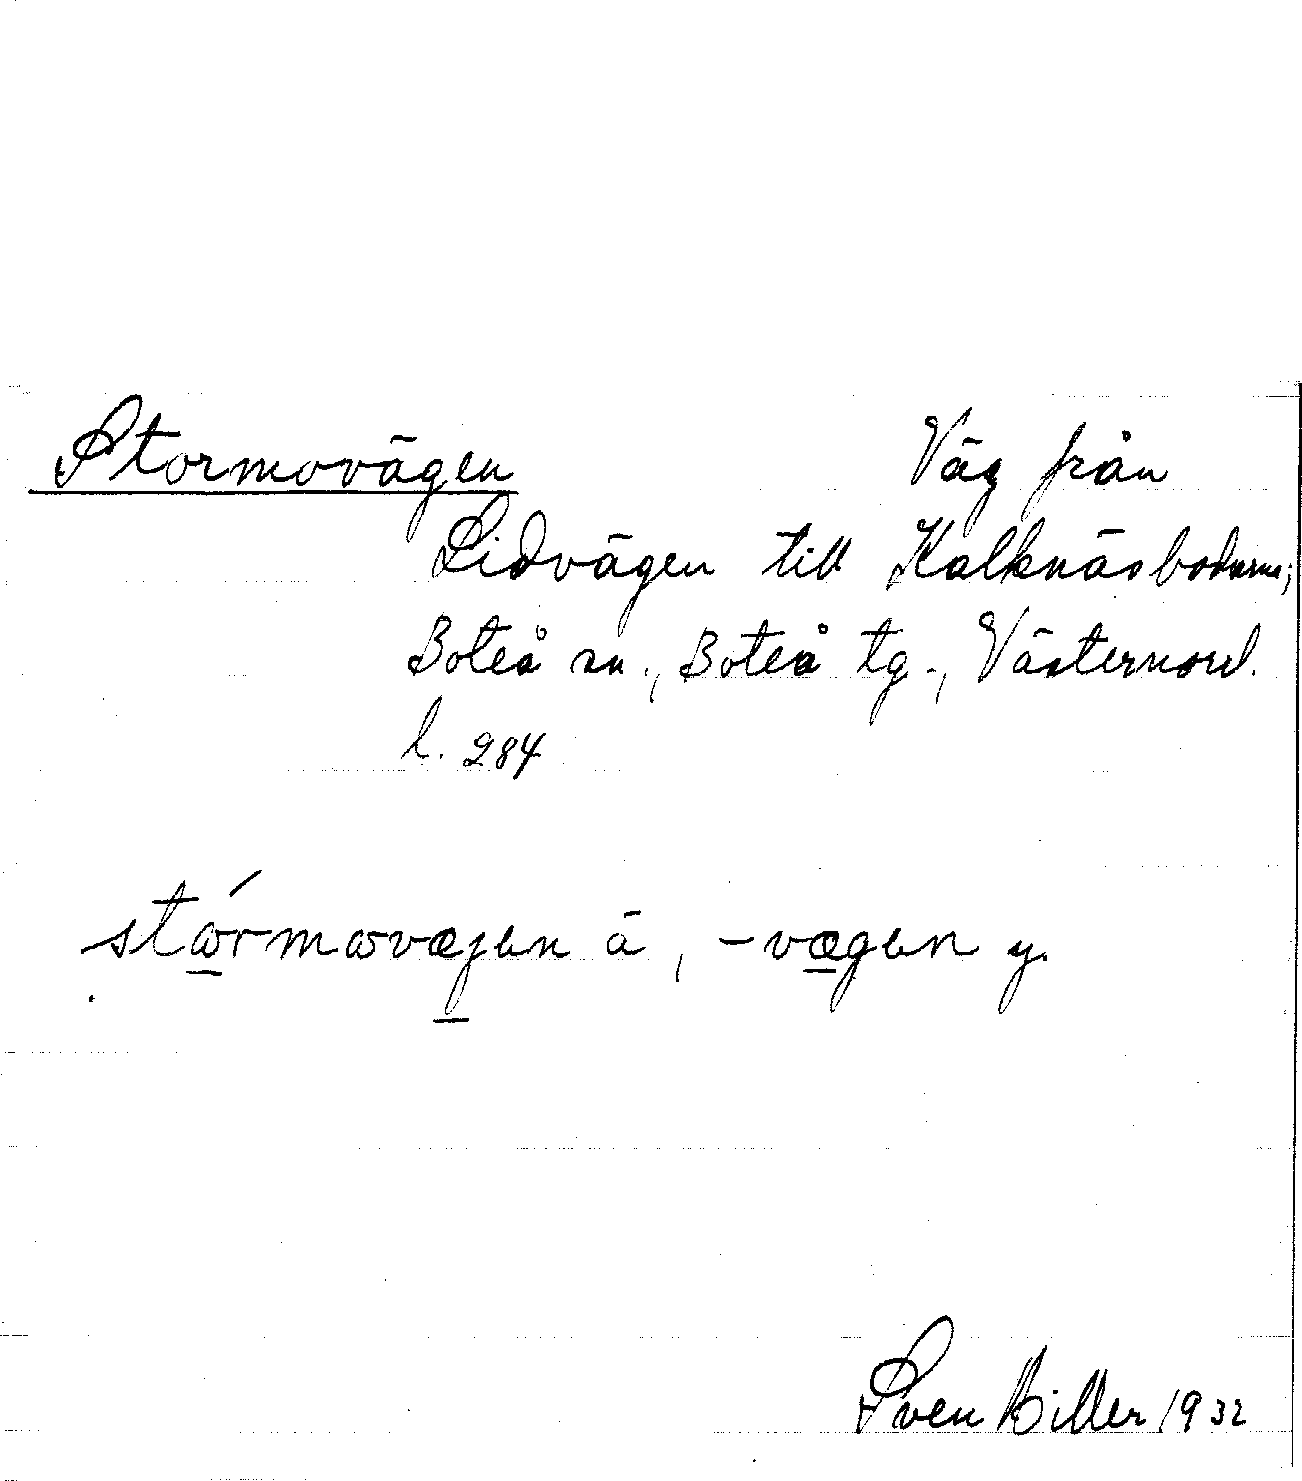 Stormovägen Väg från
Lidvägen till Kalknäsbodarna;
Boteå sn., Boteå tg., Västernorrl.
l. 284
stɷ́rmɷvæjen ä, -vægen y.
Sven Hiller 1932